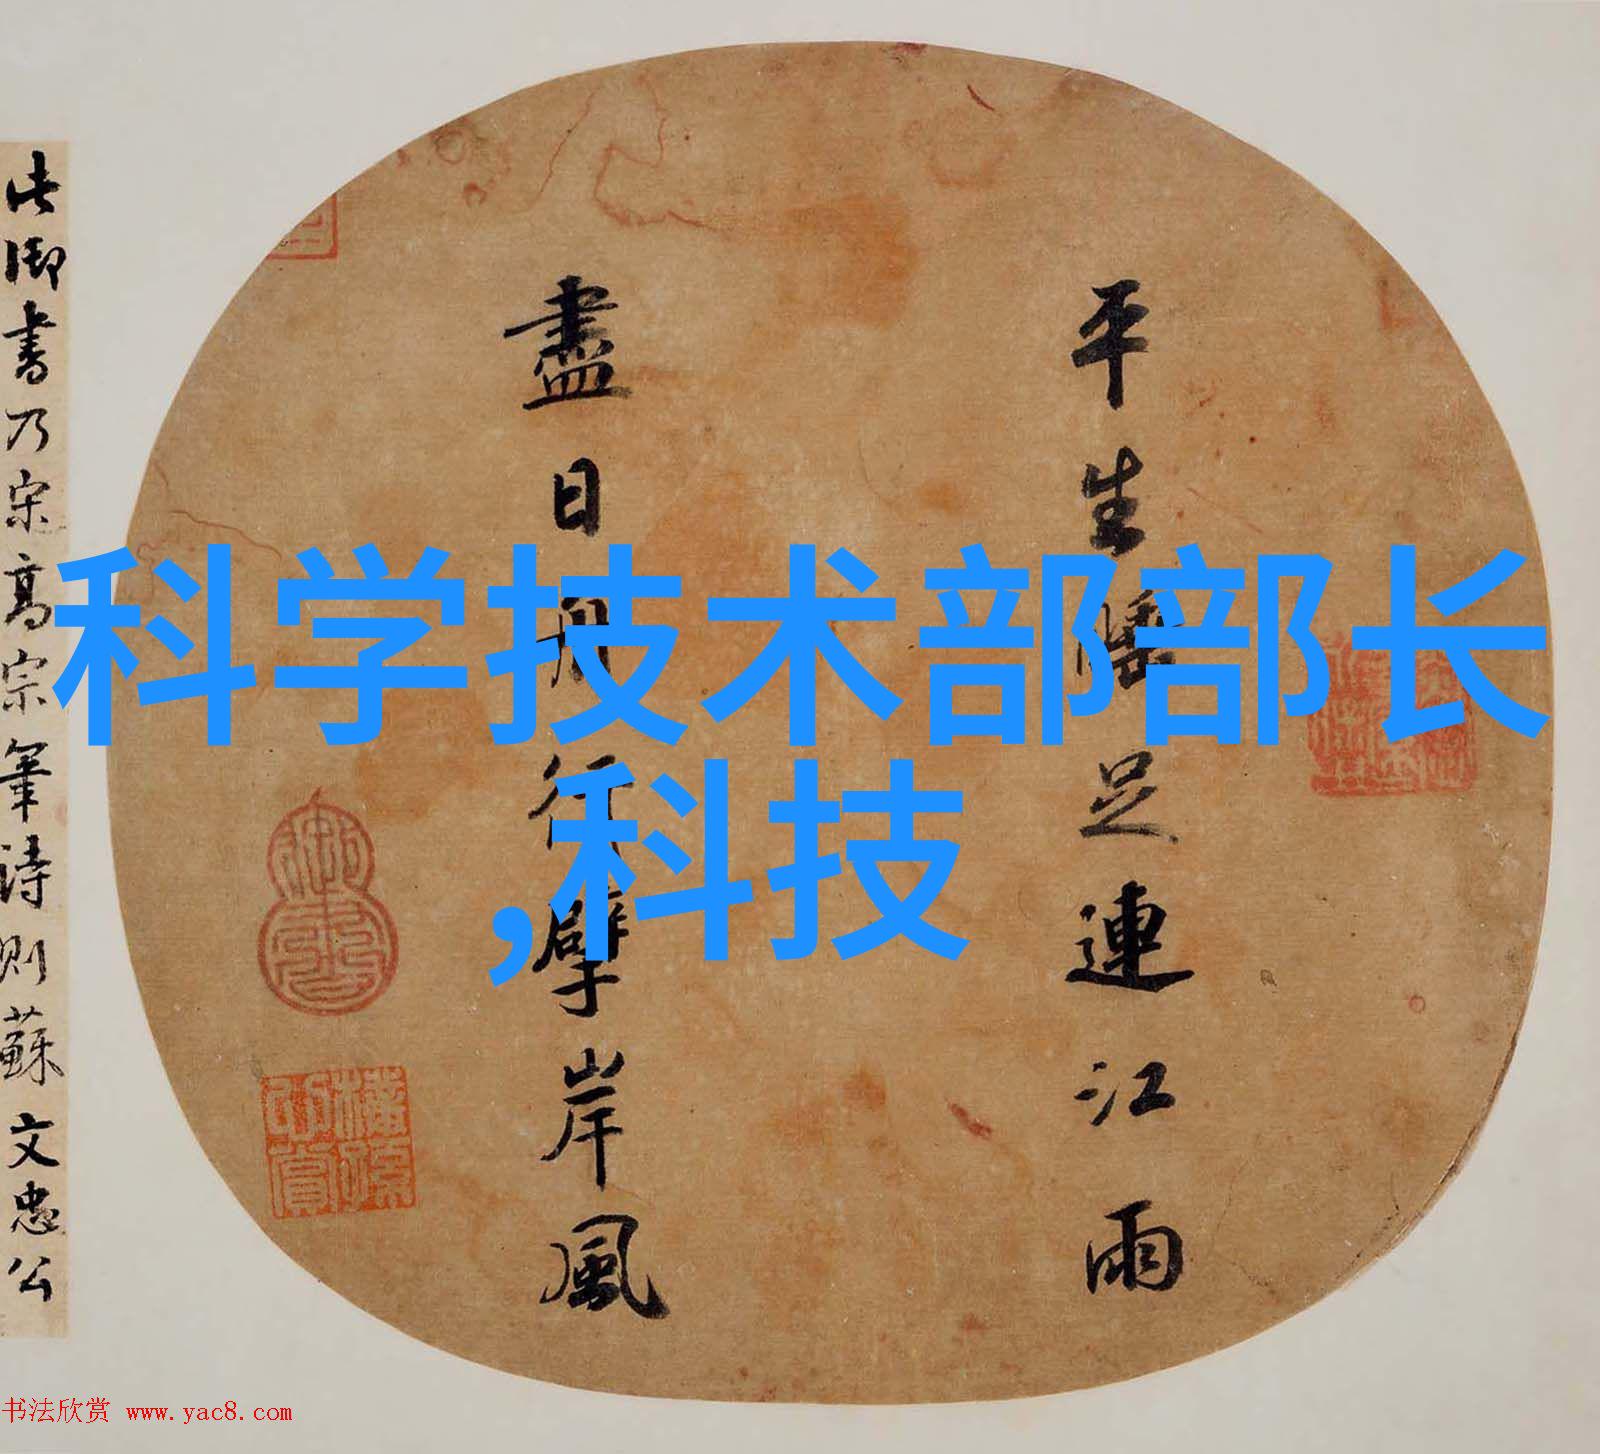 科学技术部部长
,科技
平生睡足連江雨
盡日舟行擘岸風
此御書乃宋高宗筆詩則蘇文忠公
书法欣赏 www.yac8.com